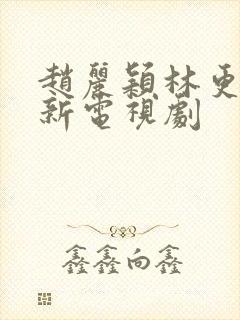 趙麗穎林更
新電視劇
鑫鑫向鑫